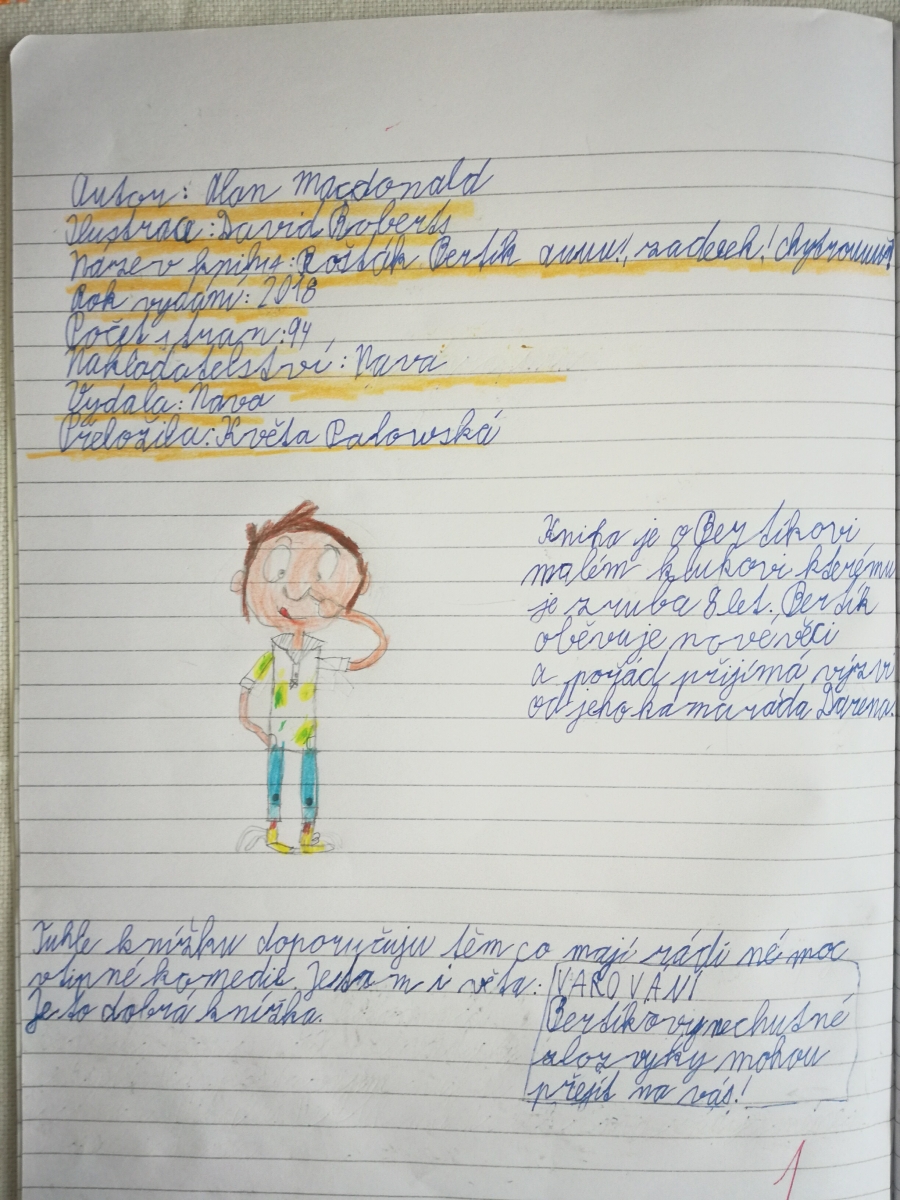 Autor: Alan Macdonald
Ilustrace: David Roberts
Název knihy: Rošťák Bertík uuuu!, zadeček! Chytroumuš!
Rok vydání: 2018
Počet stran: 94
Nakladatelství: Nava
Vydala: Nava
Přeložila: Květa Palowská
Kniha je o Bertíkovi
malém klukovi kterému
je zruba 8 let. Bertík
oběvuje nové věci
a pořád přijímá výzvi
od jeho kamaráda Darena.
Tuhle knížku doporučuju těm co mají rádi né moc
vtipné komedie. Je tam i věta:
Je to dobrá knížka.
VAROVÁNÍ
Bertíkovy nechutné
zlozvyky mohou
přejít na vás!
1